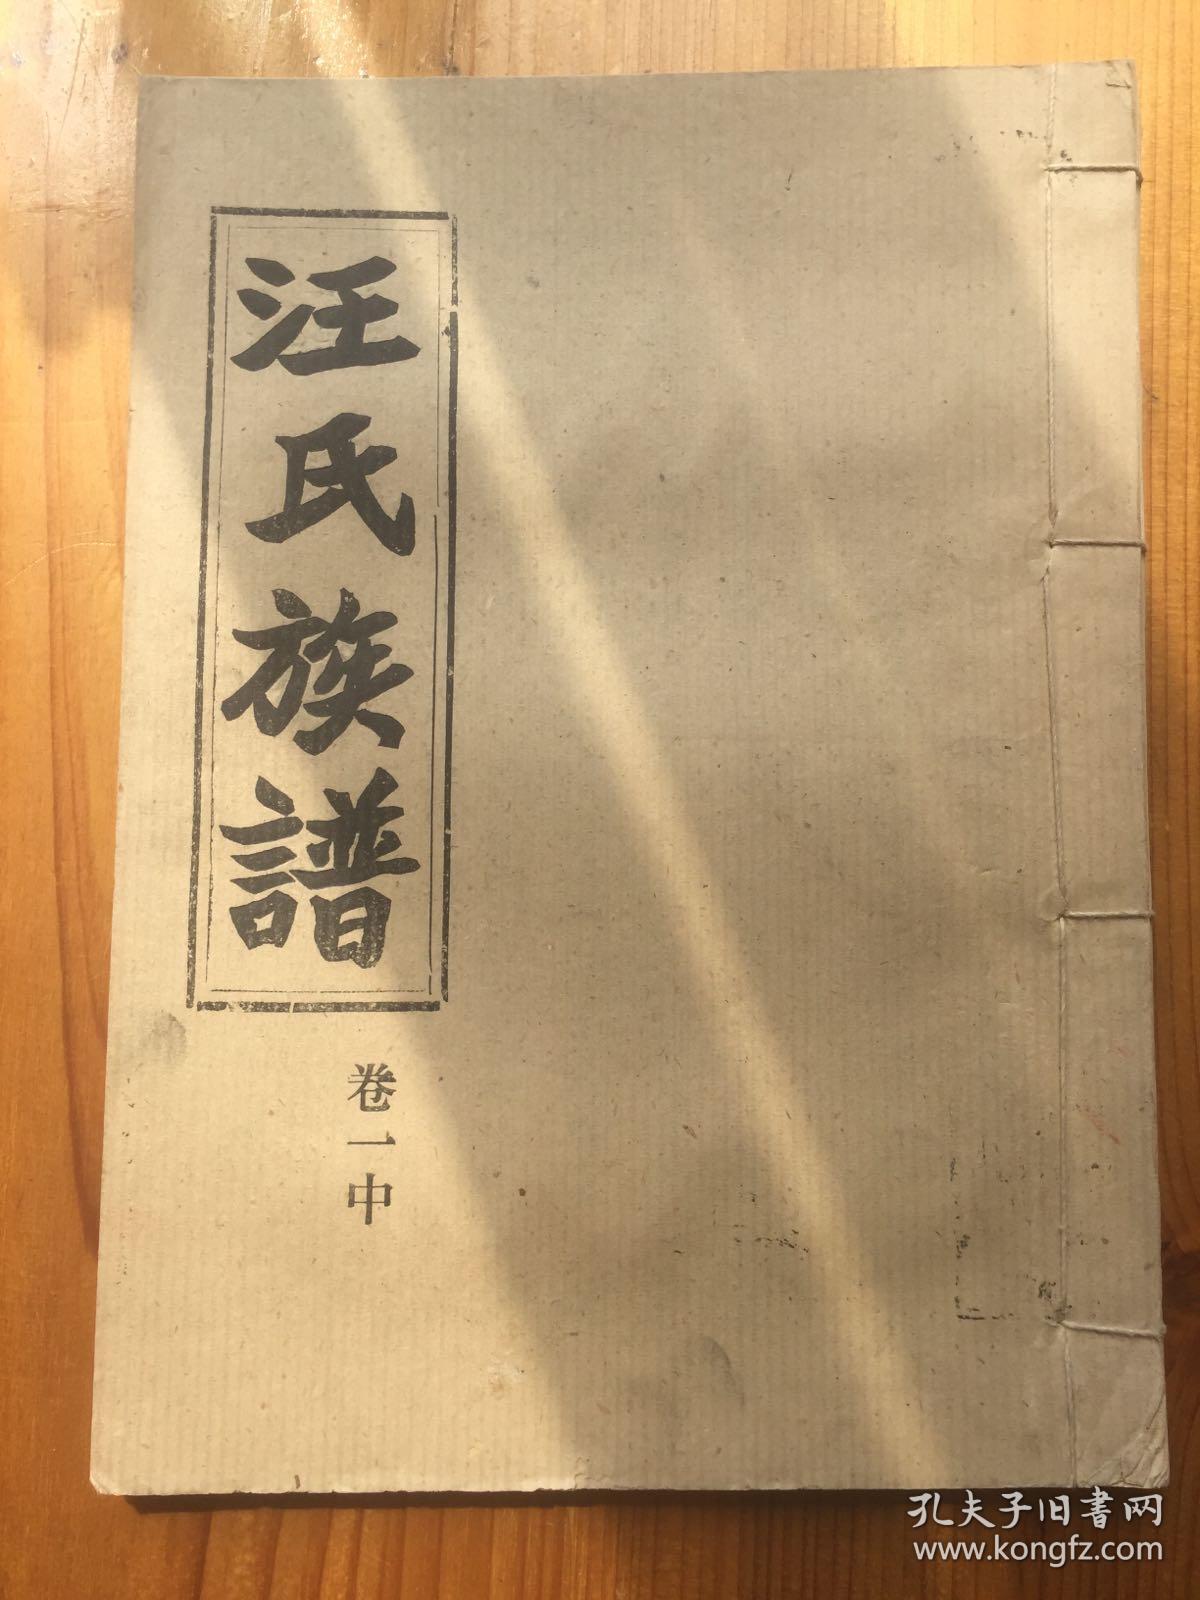 汪氏族譜
卷一中
孔夫子旧書网
www.kongfz.com